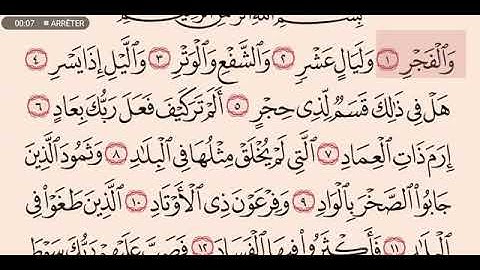 00:07 ■ ARRÊTER
بِسْمِ ٱللَّهِ ٱلرَّحْمَٰنِ ٱلرَّحِيمِ
وَٱلْفَجْرِ ١ وَلَيَالٍ عَشْرٍ ٢ وَٱلشَّفْعِ وَٱلْوَتْرِ ٣ وَٱلَّيْلِ إِذَا يَسْرِ ٤
هَلْ فِى ذَٰلِكَ قَسَمٌ لِّذِى حِجْرٍ ٥ أَلَمْ تَرَ كَيْفَ فَعَلَ رَبُّكَ بِعَادٍ ٦
إِرَمَ ذَاتِ ٱلْعِمَادِ ٧ ٱلَّتِى لَمْ يُخْلَقْ مِثْلُهَا فِى ٱلْبِلَٰدِ ٨ وَثَمُودَ ٱلَّذِينَ
جَابُوا۟ ٱلصَّخْرَ بِٱلْوَادِ ٩ وَفِرْعَوْنَ ذِى ٱلْأَوْتَادِ ١٠ ٱلَّذِينَ طَغَوْا۟ فِى
ٱلْبِلَٰدِ ١١ فَأَكْثَرُوا۟ فِيهَا ٱلْفَسَادَ ١٢ فَصَبَّ عَلَيْهِمْ رَبُّكَ سَوْطَ